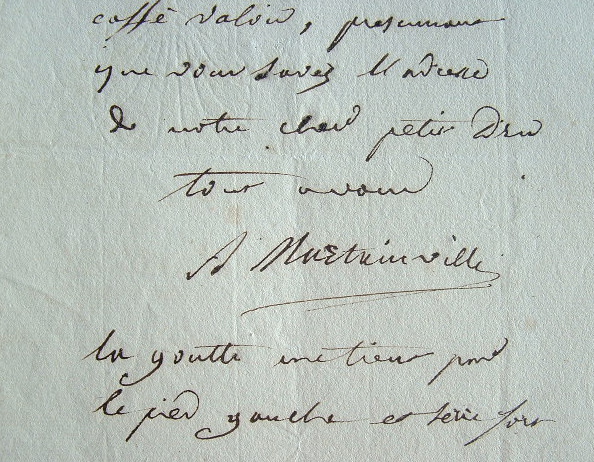 caffé valois, presumant
que vous savez l'adresse
de notre cher petit Dieu
tout a vous
A Martainville
la goutte me tient par
le pied gauche et serre fort